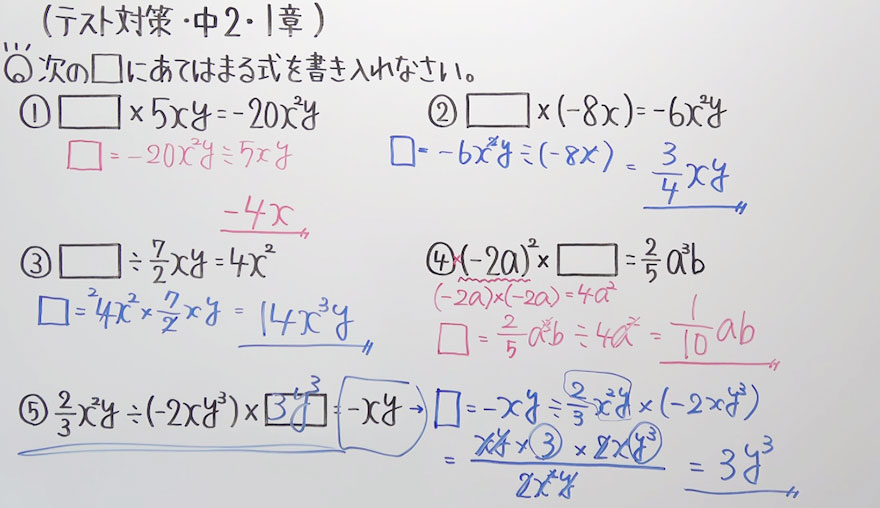 (テスト対策・中2・1章)
次の□にあてはまる式を書き入れなさい。
① □ × 5xy = -20x²y
□ = -20x²y ÷ 5xy
-4x
② □ × (-8x) = -6x²y
□ = -6x²y ÷ (-8x) = 3/4 xy
③ □ ÷ 7/2 xy = 4x²
□ = ²4x² × 7/2 xy = 14x³y
④ (-2a)² × □ = 2/5 a³b
(-2a)×(-2a) = 4a²
□ = 2/5 a³b ÷ 4a² = 1/10 ab
⑤ 2/3 x²y ÷ (-2xy³) × 3y³ = -xy
→ □ = -xy ÷ 2/3 x²y × (-2xy³)
= xy × 3 × 2xy³ / 2x²y = 3y³